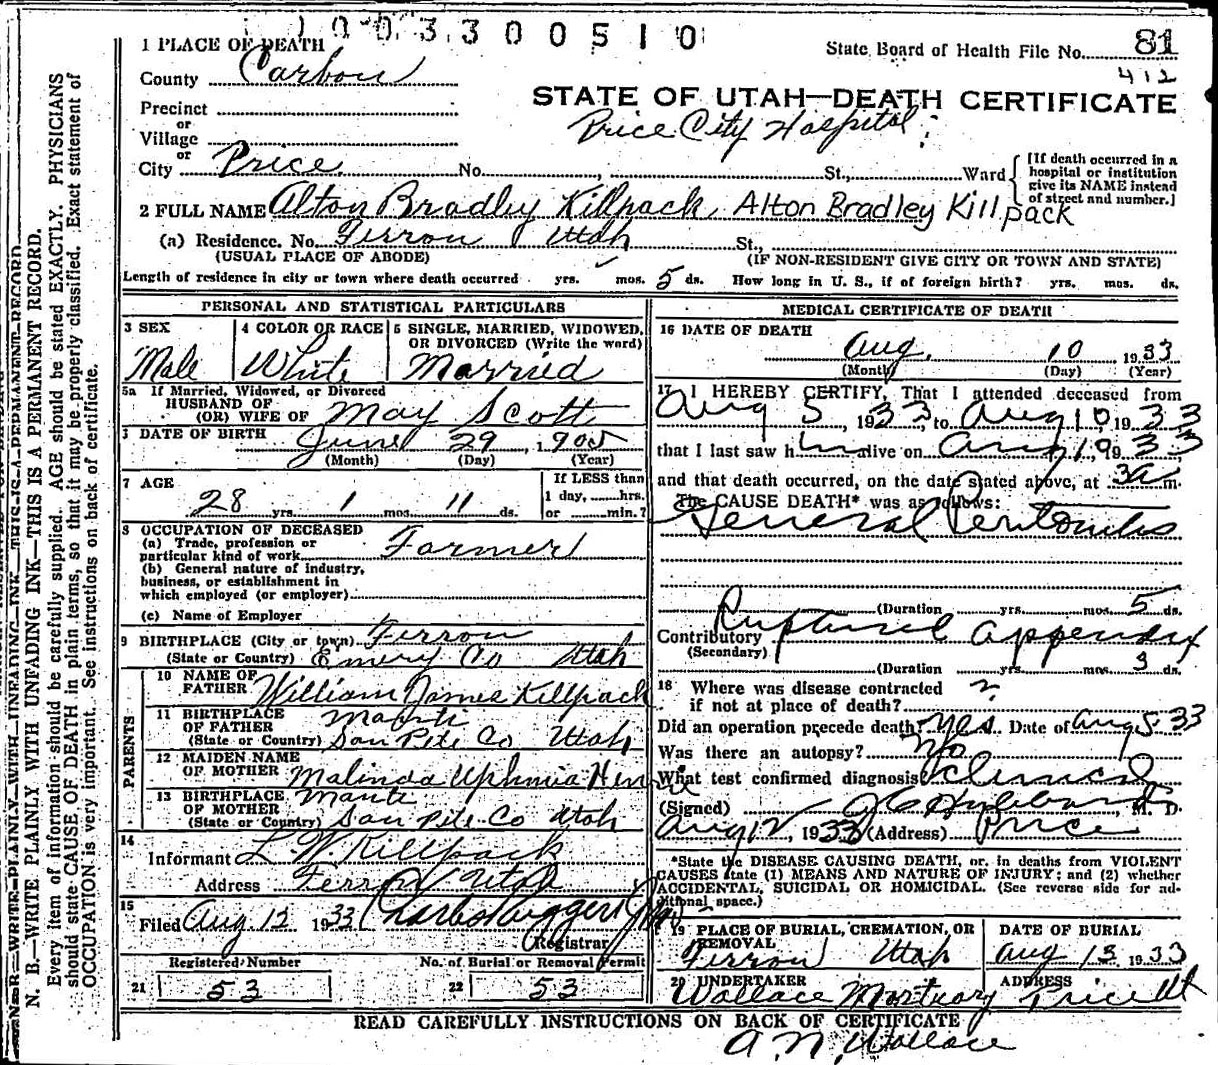 1003300510
1 PLACE OF DEATH
State Board of Health File No. 81
County Carbon
412
STATE OF UTAH—DEATH CERTIFICATE
Precinct
or
Village
Price City Hospital
or
City Price No. St., Ward
[If death occurred in a hospital or institution give its NAME instead of street and number.]
2 FULL NAME Alton Bradley Killpack Alton Bradley Killpack
(a) Residence. No. Ferron Utah St.,
(USUAL PLACE OF ABODE) (IF NON-RESIDENT GIVE CITY OR TOWN AND STATE)
Length of residence in city or town where death occurred yrs. mos. 5 ds. How long in U. S., if of foreign birth? yrs. mos. ds.
PERSONAL AND STATISTICAL PARTICULARS
3 SEX
Male
4 COLOR OR RACE
White
5 SINGLE, MARRIED, WIDOWED,
OR DIVORCED (Write the word)
Married
5a If Married, Widowed, or Divorced
HUSBAND OF
(OR) WIFE OF May Scott
DATE OF BIRTH June 29, 1905
(Month) (Day) (Year)
7 AGE
28 yrs. 1 mos. 11 ds.
If LESS than
1 day, hrs.
or min.?
8 OCCUPATION OF DECEASED
(a) Trade, profession or
particular kind of work Farmer
(b) General nature of industry,
business, or establishment in
which employed (or employer)
(c) Name of Employer
9 BIRTHPLACE (City or town) Ferron
(State or Country) Emery Co Utah
PARENTS
10 NAME OF
FATHER William James Killpack
11 BIRTHPLACE
OF FATHER Manti
(State or Country) San Pete Co Utah
12 MAIDEN NAME
OF MOTHER Malinda
13 BIRTHPLACE
OF MOTHER Manti
(State or Country) San Pete Co Utah
14
Informant L W Killpack
Address Ferron Utah
15
Filed Aug. 12 1933
Registrar
Registered Number No. of Burial or Removal Permit
21 53 22 53
MEDICAL CERTIFICATE OF DEATH
16 DATE OF DEATH
Aug. 10, 1933
(Month) (Day) (Year)
17 I HEREBY CERTIFY, That I attended deceased from
Aug 5, 1933, to Aug 10 1933
that I last saw him alive on Aug 1933
and that death occurred, on the date stated above, at 3a m.
The CAUSE DEATH* was as follows:
General Peritonitis
(Duration yrs. mos. 5 ds.
Contributory Ruptured appendix
(Secondary)
(Duration yrs. mos. 3 ds.
18 Where was disease contracted
if not at place of death? ?
Did an operation precede death? Yes. Date of Aug 5-33
Was there an autopsy? No
What test confirmed diagnosis? Clinical
(Signed) M. D.
Aug 12, 1933 (Address) Price
*State the DISEASE CAUSING DEATH, or, in deaths from VIOLENT
CAUSES state (1) MEANS AND NATURE OF INJURY; and (2) whether
ACCIDENTAL, SUICIDAL OR HOMICIDAL. (See reverse side for ad-
ditional space.)
19 PLACE OF BURIAL, CREMATION, OR
REMOVAL
Ferron Utah
DATE OF BURIAL
Aug 13 1933
20 UNDERTAKER
Wallace Mortuary
ADDRESS
Price Ut
READ CAREFULLY INSTRUCTIONS ON BACK OF CERTIFICATE
A. N. Wallace
N. B.—WRITE PLAINLY WITH UNFADING INK—THIS IS A PERMANENT RECORD.
Every item of information should be carefully supplied. AGE should be stated EXACTLY. PHYSICIANS
should state CAUSE OF DEATH in plain terms, so that it may be properly classified. Exact statement of
OCCUPATION is very important. See instructions on back of certificate.